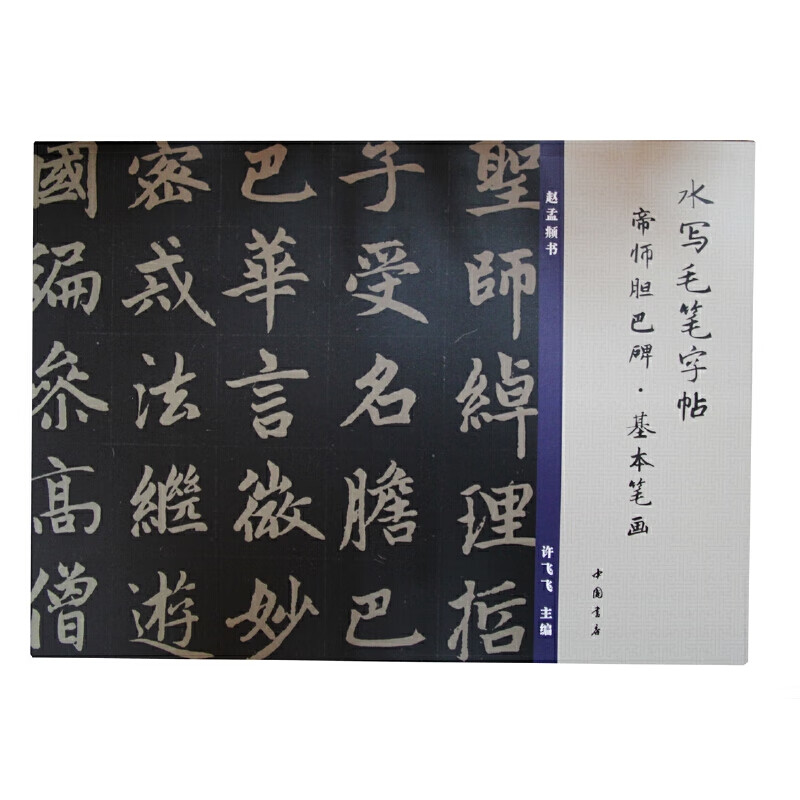 水写毛笔字帖
帝师胆巴碑·基本笔画
中国书店
赵孟頫书
许飞飞 主编
聖師綽理哲
子受名膽巴
巴華言微妙
密戒法繼遊
國編參高僧